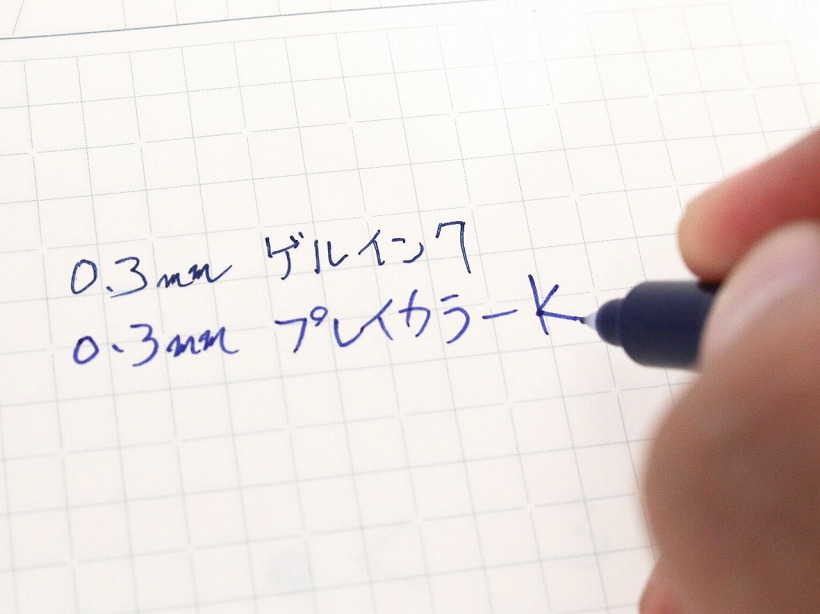 0.3mm ゲルインク
0.3mm プレイカラーK